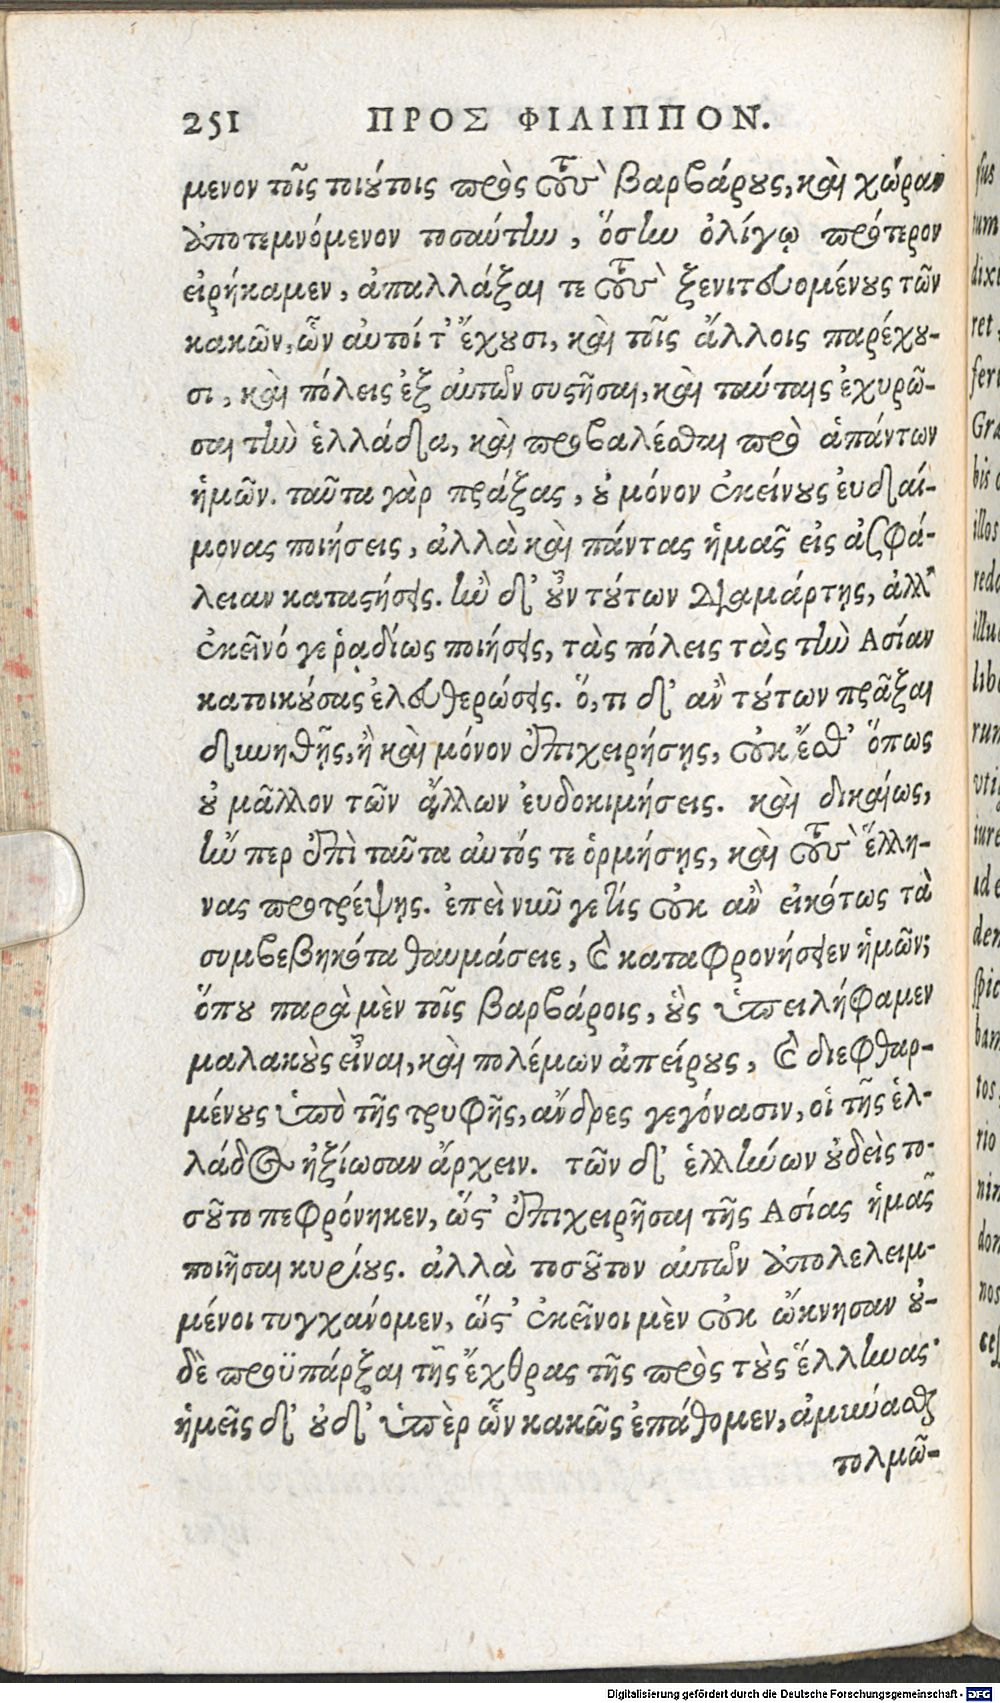 251 ΠΡΟΣ ΦΙΛΙΠΠΟΝ.
μενον τοῖς τοιούτοις πρὸς τοὺς βαρβάρους, καὶ χώραν
ἀποτεμνόμενον τοσαύτην, ὅσην ὀλίγῳ πρότερον
εἰρήκαμεν, ἀπαλλάξαι τε τοὺς ξενιτευομένους τῶν
κακῶν, ὧν αὐτοί τ' ἔχουσι, καὶ τοῖς ἄλλοις παρέχου-
σι, καὶ πόλεις ἐξ αὐτῶν συστῆσαι, καὶ ταύταις ἐχυρῶ-
σαι τὴν ἑλλάδα, καὶ προβαλέσθαι πρὸ ἁπάντων
ἡμῶν. ταῦτα γὰρ πράξας, οὐ μόνον ἐκείνους εὐδαί-
μονας ποιήσεις, ἀλλὰ καὶ πάντας ἡμᾶς εἰς ἀσφά-
λειαν καταστήσεις. ἢν δ' οὖν τούτων διαμάρτῃς, ἀλλ'
ἐκεῖνό γε ῥᾳδίως ποιήσεις, τὰς πόλεις τὰς τὴν Ασίαν
κατοικούσας ἐλευθερώσεις. ὅ, τι δ' ἂν τούτων πρᾶξαι
δυνηθῇς, ἢ καὶ μόνον ἐπιχειρήσῃς, οὐκ ἔσθ' ὅπως
οὐ μᾶλλον τῶν ἄλλων εὐδοκιμήσεις. καὶ δικαίως,
ἤν περ ἐπὶ ταῦτα αὐτός τε ὁρμήσῃς, καὶ τοὺς ἕλλη-
νας προτρέψῃς. ἐπεὶ νῦν γε τίς οὐκ ἂν εἰκότως τὰ
συμβεβηκότα θαυμάσειε, καὶ καταφρονήσειεν ἡμῶν;
ὅπου παρὰ μὲν τοῖς βαρβάροις, οὓς ὑπειλήφαμεν
μαλακοὺς εἶναι, καὶ πολέμων ἀπείρους, καὶ διεφθαρ-
μένους ὑπὸ τῆς τρυφῆς, ἄνδρες γεγόνασιν, οἳ τῆς ἑλ-
λάδος ἠξίωσαν ἄρχειν. τῶν δ' ἑλλήνων οὐδεὶς το-
σοῦτο πεφρόνηκεν, ὥστ' ἐπιχειρῆσαι τῆς Ασίας ἡμᾶς
ποιῆσαι κυρίους. ἀλλὰ τοσοῦτον αὐτῶν ἀπολελειμ-
μένοι τυγχάνομεν, ὥστ' ἐκεῖνοι μὲν οὐκ ὤκνησαν οὐ-
δὲ προϋπάρξαι τῆς ἔχθρας τῆς πρὸς τοὺς ἕλληνας·
ἡμεῖς δ' οὐδ' ὑπὲρ ὧν κακῶς ἐπάθομεν, ἀμύνασθαι
τολμῶ-
Digitalisierung gefördert durch die Deutsche Forschungsgemeinschaft - DFG